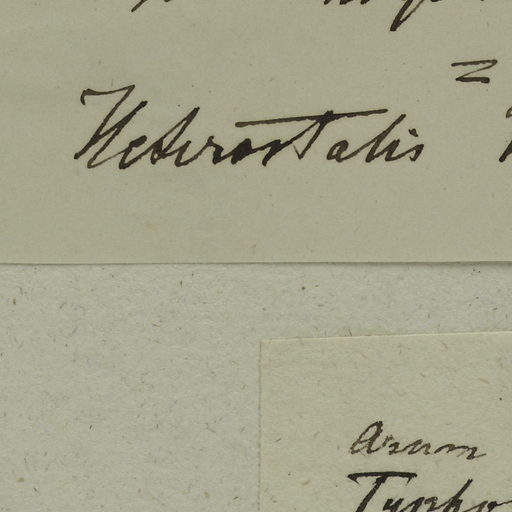 =
Heterostalis
Arum
Typho